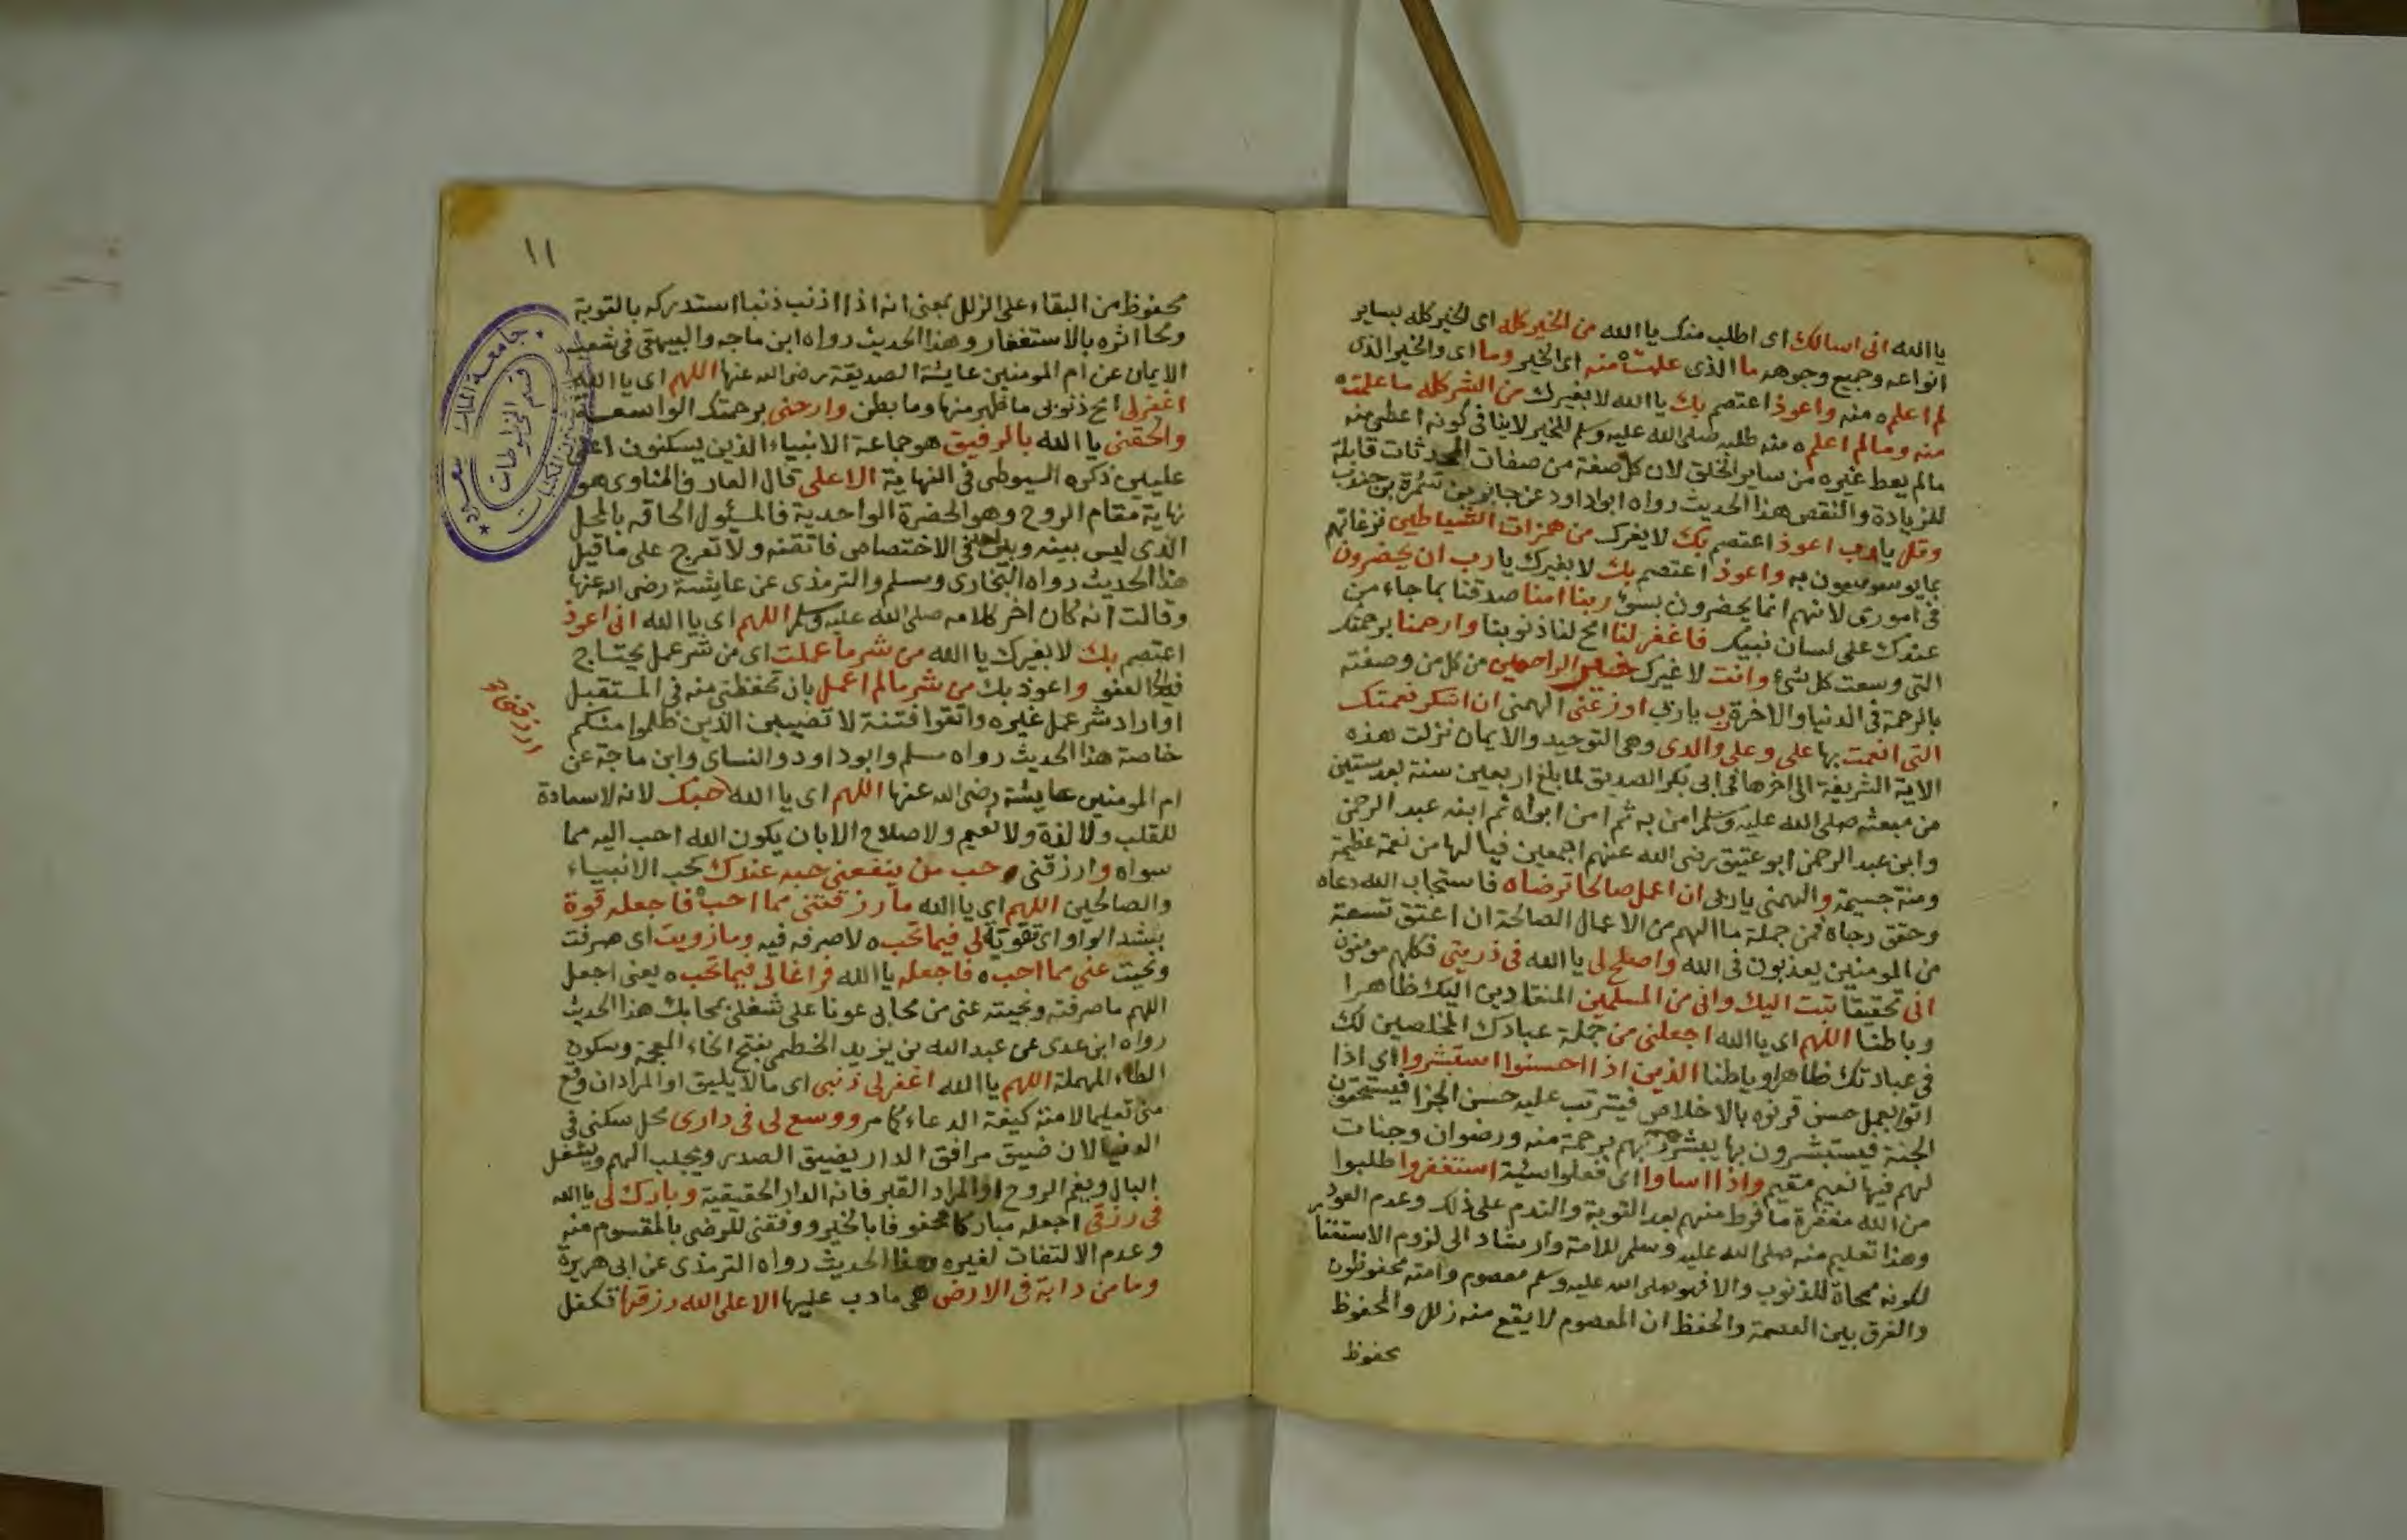 يا الله انى اسالك اى اطلب منك يا الله من الخير كله اى الخير كله بساير
انواعه وجميع وجوهه ما الذى علمته منه اى الخير وما اى والخير الذى
لم اعلمه منه واعوذ اعتصم بك يا الله لا بغيرك من الشر كله ما علمته
منه ومالم اعلمه منه طلبه صلى الله عليه وسلم للخير لا ينافى كونه اعطى منه
مالم يعط غيره من ساير الخلق لان كل صفة من صفات المحدثات قابلة
للزيادة والنقص هذا الحديث رواه ابو داود عن جابر بن سمرة بن جندب
وقل يا رب اعوذ اعتصم بك لا بغيرك من همزات الشياطين نزغاتهم
بما يوسوسون به واعوذ اعتصم بك لا بغيرك يا رب ان يحضرون
فى امورى لانهم انما يحضرون بسوء ربنا امنا صدقنا بما جاء من
عندك على لسان نبيك فاغفر لنا امح لنا ذنوبنا وارحمنا برحمتك
التى وسعت كل شئ وانت لا غيرك خير الراحمين من كل من وصفته
بالرحمة فى الدنيا والاخرة رب يا ربى اوزعنى الهمنى ان اشكر نعمتك
التى انعمت بها على وعلى والدى وهى التوحيد والايمان نزلت هذه
الاية الشريفة الى اخرها فى ابى بكر الصديق لما بلغ اربعين سنة بعد سنتين
من مبعثه صلى الله عليه وسلم امن به ثم امن ابواه ثم ابنه عبد الرحمن
وابن عبد الرحمن ابو عتيق رضى الله عنهم اجمعين فيا لها من نعمة عظيمة
ومنة جسيمة والهمنى يا ربى ان اعمل صالحا ترضاه فاستجاب الله دعاه
وحقق رجاه فمن جملة ما الهم من الاعمال الصالحة ان اعتق تسعة
من المومنين يعذبون فى الله واصلح لى يا الله فى ذريتى فكلهم مومنون
انى تحقيقا تبت اليك وانى من المسلمين المنقادين اليك ظاهرا
وباطنا اللهم اى يا الله اجعلنى من جملة عبادك المخلصين لك
فى عبادتك ظاهرا وباطنا الذين اذا احسنوا استبشروا اى اذا
اتوا بعمل حسن قرنوه بالاخلاص فيترتب عليه حسن الجزا فيستحقون
الجنة فيستبشرون بها يبشرهم ربهم برحمة منه ورضوان وجنات
لهم فيها نعيم مقيم واذا اساوا اى فعلوا سيئة استغفروا طلبوا
من الله مغفرة ما فرط منهم بعد التوبة والندم على ذلك وعدم العود
وهذا تعليم منه صلى الله عليه وسلم للامة وارشاد الى لزوم الاستغفا
لكونه ممحاة للذنوب والا فهو صلى الله عليه وسلم معصوم وامته محفوظون
والفرق بين العصمة والحفظ ان المعصوم لا يقع منه زلل والمحفوظ
محفوظ
١١
محفوظ من البقاء على الزلل بمعنى انه اذا اذنب ذنبا استدركه بالتوبة
ومحا اثره بالاستغفار وهذا الحديث رواه ابن ماجه والبيهقى فى شعب
الايمان عن ام المومنين عايشة الصديقة رضى الله عنها اللهم اى يا الله
اغفر لى امح ذنوبى ما ظهر منها وما بطن وارحمنى برحمتك الواسعة
والحقنى يا الله بالرفيق هو جماعة الانبياء الذين يسكنون اعلى
عليين ذكره السيوطى فى النهاية الاعلى قال العارف المناوى هو
نهاية مقام الروح وهو الحضرة الواحدية فالمسئول الحاقه بالمحل
الذى ليس بينه وبين احد فى الاختصاص فاتقنه ولا تعرج على ما قيل
هذا الحديث رواه البخارى ومسلم والترمذى عن عايشة رضى الله عنها
وقالت انه كان اخر كلامه صلى الله عليه وسلم اللهم اى يا الله انى اعوذ
اعتصم بك لا بغيرك يا الله من شر ما عملت اى من شر عمل يحتاج
فيه الى العفو واعوذ بك من شر مالم اعمل بان تحفظنى منه فى المستقبل
او اراد شر عمل غيره واتقوا فتنة لا تصيبن الذين ظلموا منكم
خاصة هذا الحديث رواه مسلم وابو داود والنساى وابن ماجة عن
ام المومنين عايشة رضى الله عنها اللهم اى يا الله حبك لانه لا سعادة
ارزقنى
للقلب ولا لذة ولا نعيم ولا صلاح الا بان يكون الله احب اليه مما
سواه وارزقنى حب من ينفعنى حبه عندك كحب الانبياء
والصالحين اللهم اى يا الله ما رزقتنى مما احب فاجعله قوة
بشد الواو اى تقوية لى فيما تحبه لاصرفه فيه وما زويت اى صرفت
ونحيت عنى مما احبه فاجعله يا الله فراغا لى فيما تحبه يعنى اجعل
اللهم ما صرفته ونحيته عنى من محابى عونا على شغلى بمحابك هذا الحديث
رواه ابن عدى عن عبد الله بن يزيد الخطمى بفتح الخاء المعجمة وسكون
الطاء المهملة اللهم يا الله اغفر لى ذنبى اى ما لا يليق او المراد ان وقع
منى تعليما لامته كيفة الدعاء كما مر ووسع لى فى دارى محل سكنى فى
الدنيا لان ضيق مرافق الدار يضيق الصدر ويجلب الهم ويشغل
البال ويغم الروح او المراد القبر فانه الدار الحقيقية وبارك لى يا الله
فى رزقى اجعله مباركا محفوفا بالخير ووفقنى للرضى بالمقسوم منه
وعدم الالتفات لغيره هذا الحديث رواه الترمذى عن ابى هريرة
وما من دابة فى الارض هى ما دب عليها الا على الله رزقها تكفل
جامعة الملك سعود
قسم المخطوطات